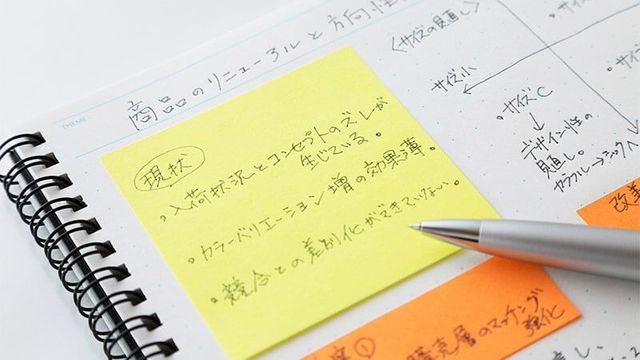 THEME
商品のリニューアルと方向性
現状
。入荷状況とコンセプトのズレが
生じている。
。カラーバリエーション増の効果薄。
。競合との差別化ができていない。
<サイズの見直し
サイズ小
。サイズC
↓
デザイン性の
見直し。
カラフル→シックへ
改善
購買層のマッチング
強化